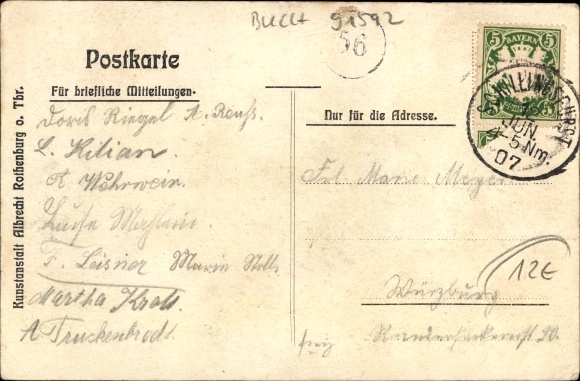 BUCH 91592
56
Postkarte
Für briefliche Mitteilungen.
Nur für die Adresse.
Kunstanstalt Albrecht Rothenburg o. Tbr.
5 BAYERN 5
SCHILLINGSFÜRST
JUN.
4-5 Nm.
07
Doris Riegel A. Reuß.
L. Kilian.
A. Wehrwein.
F. Leisner Marie
Martha
A Truckenbrodt.
Frl. Marie Meyer
Würzburg
20.
12€